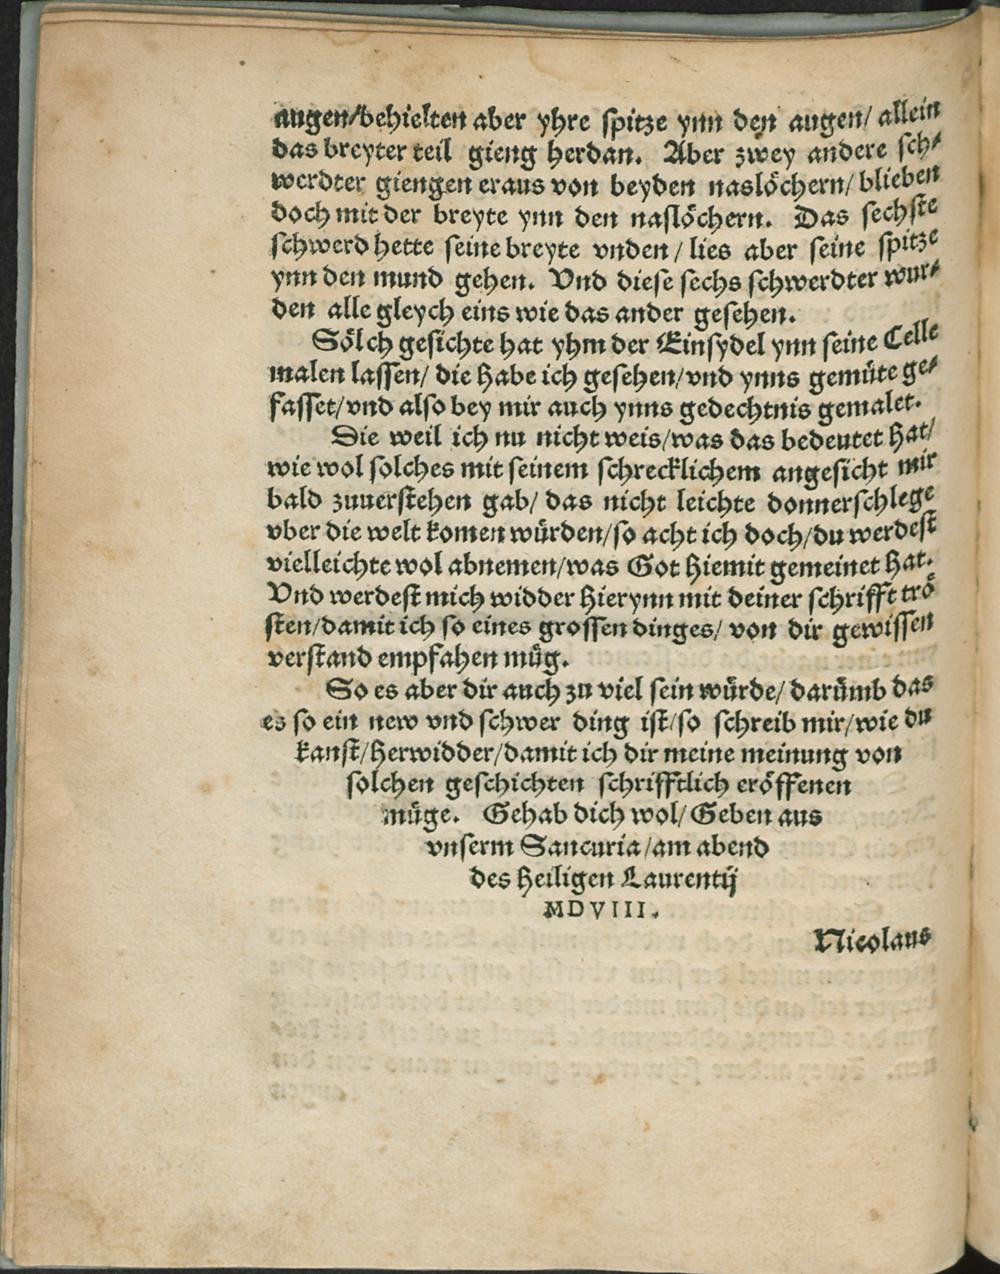 augen/behielten aber yhre spitze ynn den augen/ allein
das breyter teil gieng herdan. Aber zwey andere sch⸗
werdter giengen eraus von beyden naslöchern/ blieben
doch mit der breyte ynn den naslöchern. Das sechste
schwerd hette seine breyte vnden/ lies aber seine spitze
ynn den mund gehen. Vnd diese sechs schwerdter wur⸗
den alle gleych eins wie das ander gesehen.
Sölch gesichte hat yhm der Einsydel ynn seine Celle
malen lassen/ die habe ich gesehen/vnd ynns gemüte ge⸗
fasset/vnd also bey mir auch ynns gedechtnis gemalet.
Die weil ich nu nicht weis/was das bedeutet hat/
wie wol solches mit seinem schrecklichem angesicht mir
bald zuuerstehen gab/ das nicht leichte donnerschlege
vber die welt komen würden/so acht ich doch/du werdest
vielleichte wol abnemen/was Got hiemit gemeinet hat.
Vnd werdest mich widder hierynn mit deiner schrifft trö
sten/damit ich so eines grossen dinges/ von dir gewissen
verstand empfahen müg.
So es aber dir auch zu viel sein würde/ darümb das
es so ein new vnd schwer ding ist/so schreib mir/wie du
kanst/herwidder/damit ich dir meine meinung von
solchen geschichten schrifftlich eröffenen
müge. Gehab dich wol/ Geben aus
vnserm Sancuria/am abend
des heiligen Laurentij
MDVIII.
Nicolaus